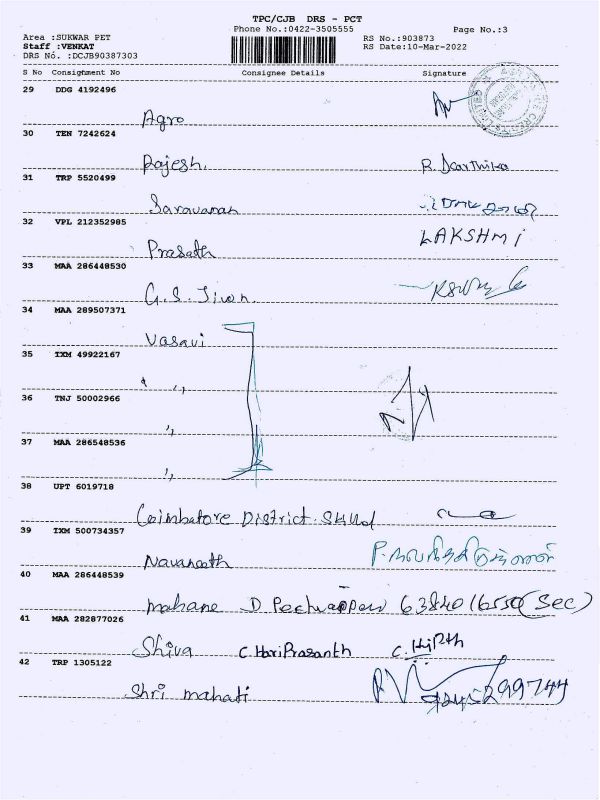 TPC/CJB DRS - PCT
Phone No.:0422-3505555
Page No.:3
Area :SUKWAR PET
Staff :VENKAT
DRS No. :DCJB90387303
RS No.:903873
RS Date:10-Mar-2022
S No Consignment No Consignee Details Signature
29 DDG 4192496
Agro
30 TEN 7242624
Rajesh. R. Daarthika
31 TRP 5520499
Saravanan
32 VPL 212352985
Prasath LAKSHMI
33 MAA 286448530
G.S. Jiwn.
34 MAA 289507371
Vasavi
35 IXM 49922167
"
36 TNJ 50002966
"
37 MAA 286548536
"
38 UPT 6019718
Coimbatore District
39 IXM 500734357
Navaneeth
40 MAA 286448539
mahane D (Sec)
41 MAA 282877026
Shiva C. Hari Prasanth
42 TRP 1305122
Shri mahati